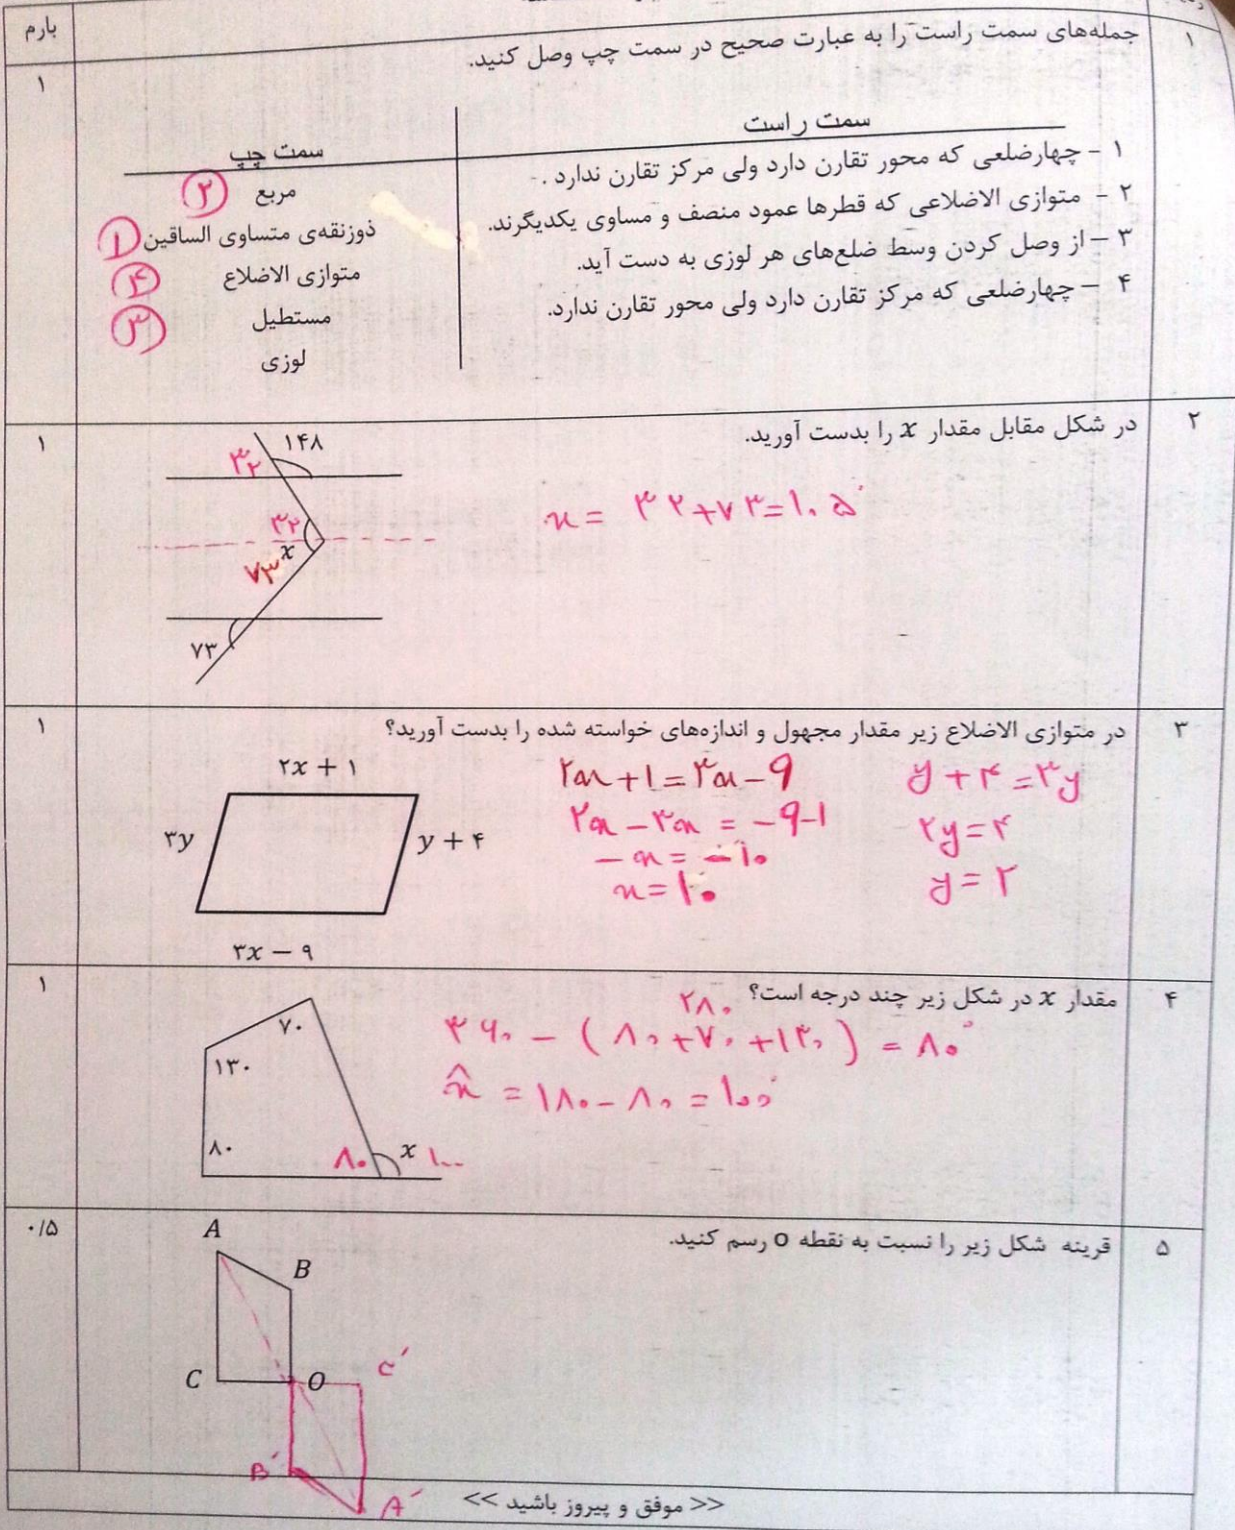 بارم
۱
جمله‌های سمت راست را به عبارت صحیح در سمت چپ وصل کنید.
۱
سمت راست
۱ - چهارضلعی که محور تقارن دارد ولی مرکز تقارن ندارد .
۲ - متوازی الاضلاعی که قطرها عمود منصف و مساوی یکدیگرند.
۳ - از وصل کردن وسط ضلع‌های هر لوزی به دست آید.
۴ - چهارضلعی که مرکز تقارن دارد ولی محور تقارن ندارد.
سمت چپ
مربع ۲
ذوزنقه‌ی متساوی الساقین ۱
متوازی الاضلاع ۴
مستطیل ۳
لوزی
۲
در شکل مقابل مقدار x را بدست آورید.
۱
x = ۳۲+۷۳=۱۰۵°
۱۴۸
۳۲
۳۲
x
۷۳
۷۳
۳
در متوازی الاضلاع زیر مقدار مجهول و اندازه‌های خواسته شده را بدست آورید؟
۱
y + ۴ = ۳y
۲y = ۴
y = ۲
۲x + ۱ = ۳x - ۹
۲x - ۳x = -۹-۱
-x = -۱۰
x = ۱۰
۲x + ۱
۳y
y + ۴
۳x - ۹
۴
مقدار x در شکل زیر چند درجه است؟
۱
۲۸۰
۳۶۰ - (۸۰+۷۰+۱۳۰) = ۸۰°
x̂ = ۱۸۰ - ۸۰ = ۱۰۰°
۷۰
۱۳۰
۸۰
۸۰
x ۱۰۰
۵
قرینه شکل زیر را نسبت به نقطه O رسم کنید.
۰/۵
A
B
C
O
C′
B′
A′
<< موفق و پیروز باشید >>